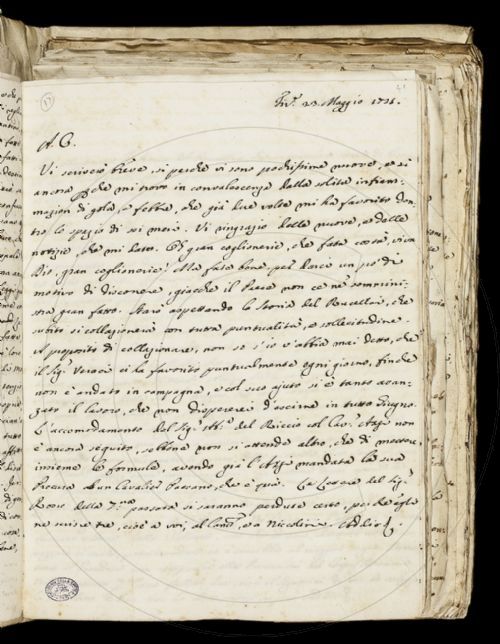 (17)
Fir.e 23 Maggio 1721.
A. C.
Vi scriverò breve, sì perchè vi sono pochissime nuove, e sì
ancora p.chè mi trovo in convalescenza dalla solita infiam-
mazion di gola, e febbre, che già due volte mi ha favorito den-
tro lo spazio di sei mesi. Vi ringrazio delle nuove, e delle
notizie, che mi date. Oh gran coglionerie, che fate costà, viva
Dio, gran coglionerie! Ma fate bene, per darci un po' di
motivo di discorrere, giacchè il Paese non ce ne somministra
gran fatto. Starò aspettando la Storia del Rucellai, che
subito si collazionerà con tutta puntualità, e sollecitudine.
A proposito di collazionare, non so s'io v'abbia mai detto, che
il Sig.r Veraci ci ha favorito puntualmente ogni giorno, finchè
non è andato in campagna, e col suo ajuto si è tanto avan-
zato il lavoro, che non dispererei d'uscirne in tutto Giugno.
L'accomodamento del Sig.r Ab.e del Riccio col Cav.r non
è ancora seguito, sebbene non si attende altro, che di mettere
insieme le formule, avendo già l' mandata la sua
Procura a un Cavalier Paesano, che è quà. Le Lettere del Sig.r
della passata si saranno perdute certo, perchè egli
ne scrisse tre, cioè a voi, al , e a Niccolini. Addio